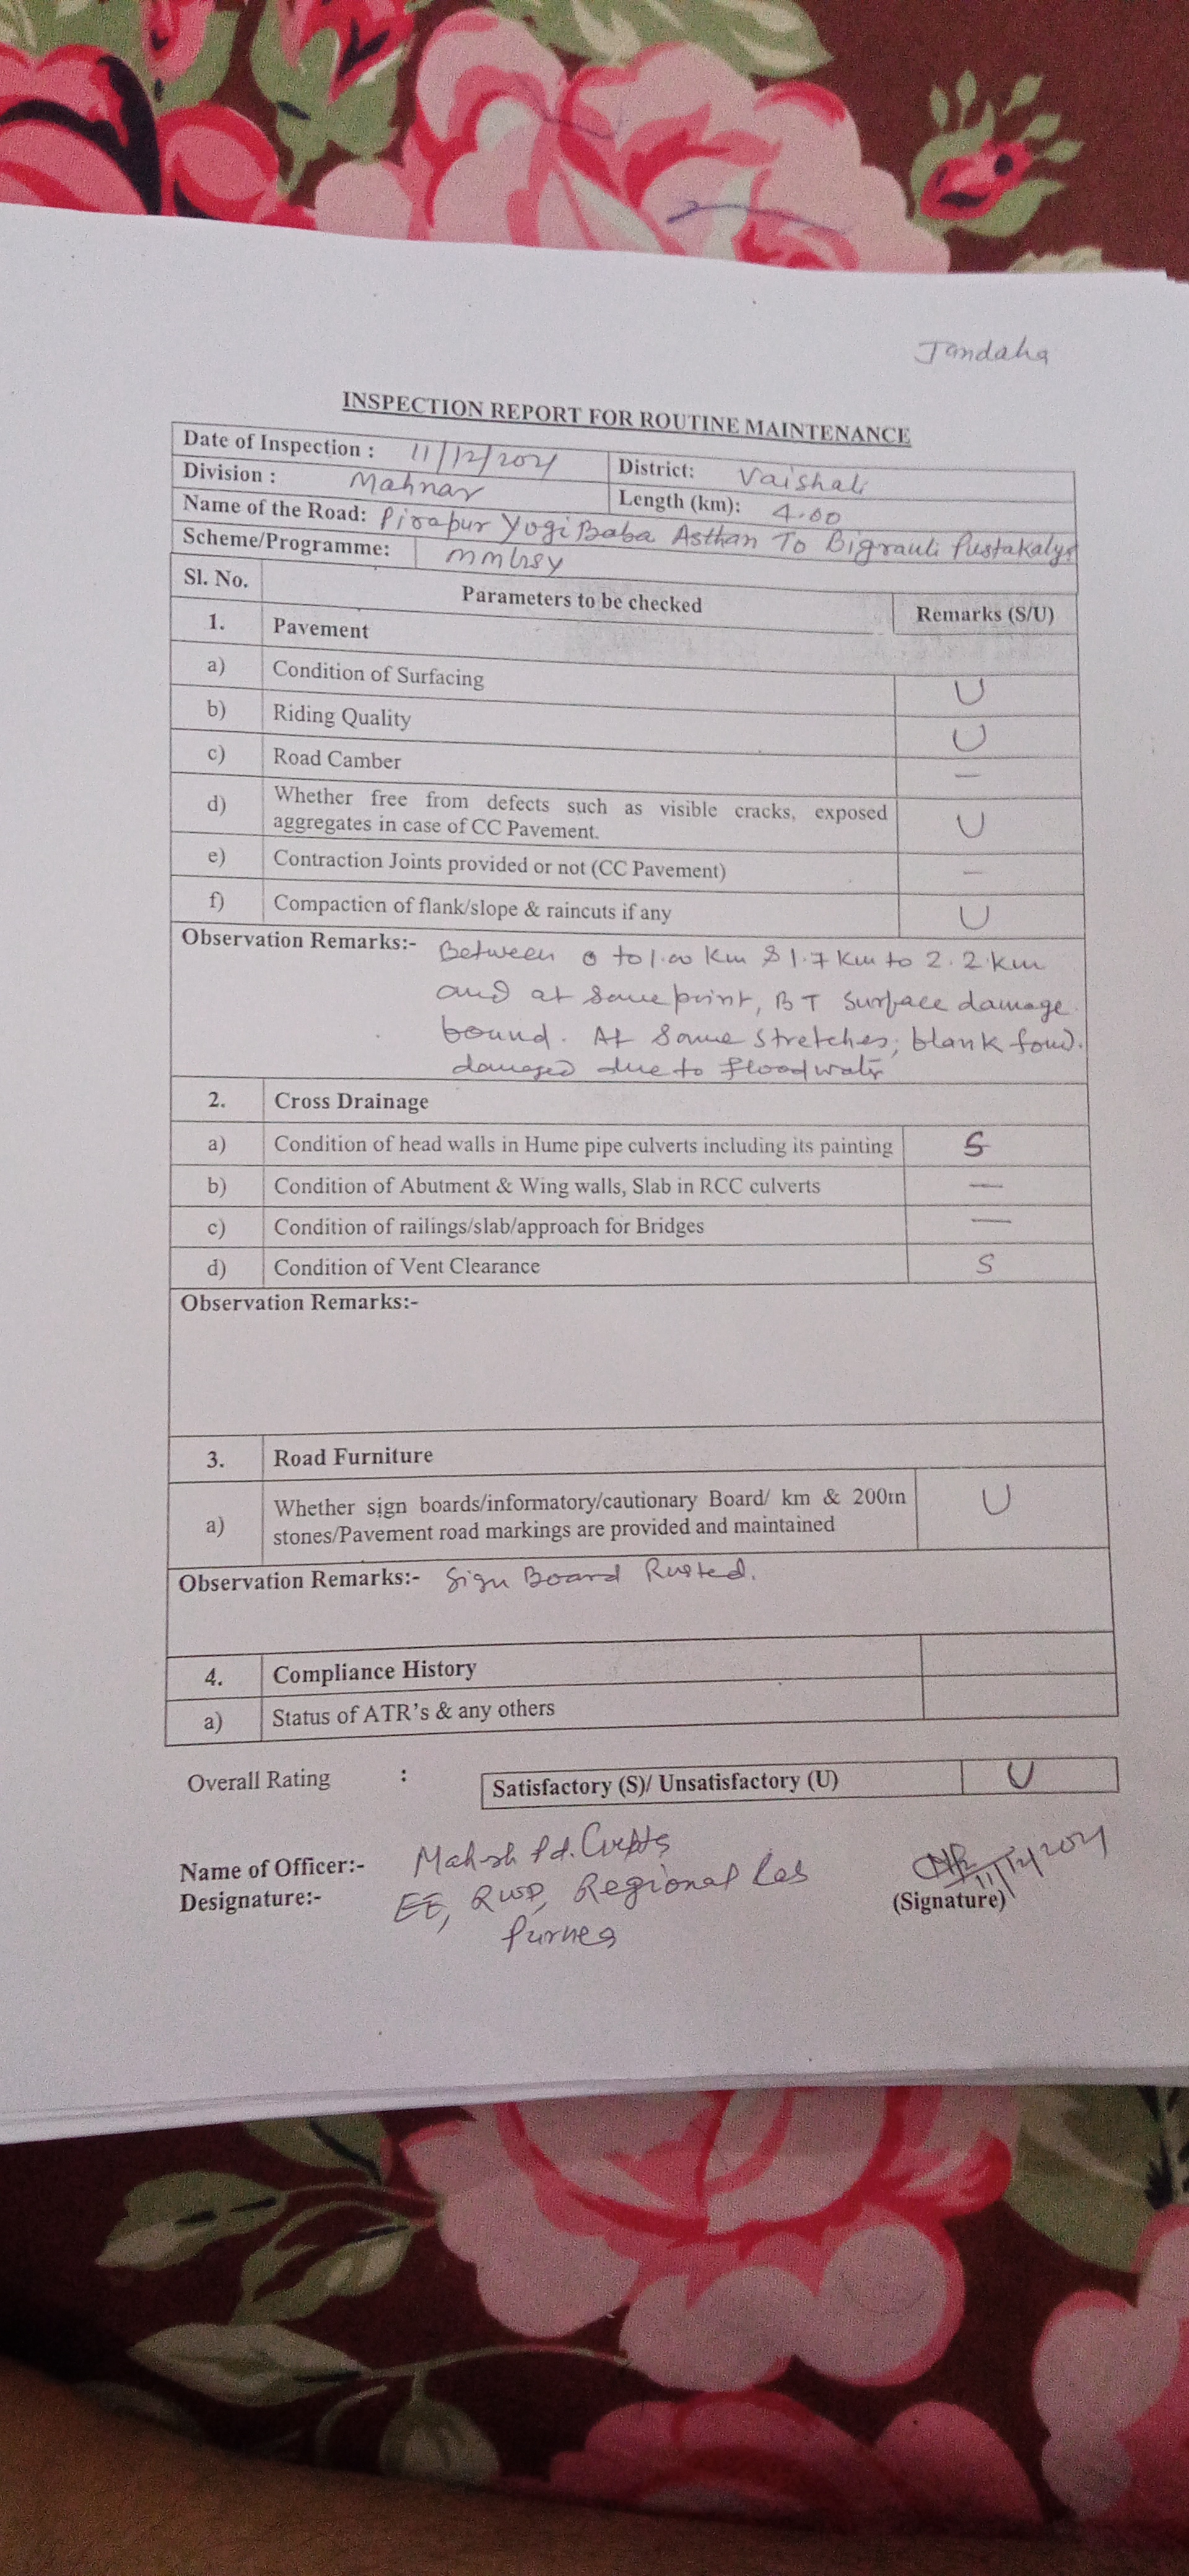 Jandaha
INSPECTION REPORT FOR ROUTINE MAINTENANCE
Date of Inspection : 11/12/2021 District: Vaishali
Division : Mahnar Length (km): 4.00
Name of the Road: Pirapur Yogi Baba Asthan To Bigrauli Pustakalya
Scheme/Programme: MMGSY
Sl. No. Parameters to be checked Remarks (S/U)
1. Pavement
a) Condition of Surfacing U
b) Riding Quality U
c) Road Camber —
d) Whether free from defects such as visible cracks, exposed
aggregates in case of CC Pavement. U
e) Contraction Joints provided or not (CC Pavement) —
f) Compaction of flank/slope & raincuts if any U
Observation Remarks:- Between 0 to 1.00 Km & 1.7 Km to 2.2 km
and at some point, BT Surface damage
bound. At Some Stretches, blank foud.
damaged due to flood water
2. Cross Drainage
a) Condition of head walls in Hume pipe culverts including its painting S
b) Condition of Abutment & Wing walls, Slab in RCC culverts —
c) Condition of railings/slab/approach for Bridges —
d) Condition of Vent Clearance S
Observation Remarks:-
3. Road Furniture
a) Whether sign boards/informatory/cautionary Board/ km & 200m
stones/Pavement road markings are provided and maintained U
Observation Remarks:- Sign Board Rusted.
4. Compliance History
a) Status of ATR's & any others
Overall Rating : Satisfactory (S)/ Unsatisfactory (U) U
Name of Officer:- Mahesh Pd. Gupta
Designature:- EE, RWD, Regional Lab
Purnea
11/12/2021
(Signature)